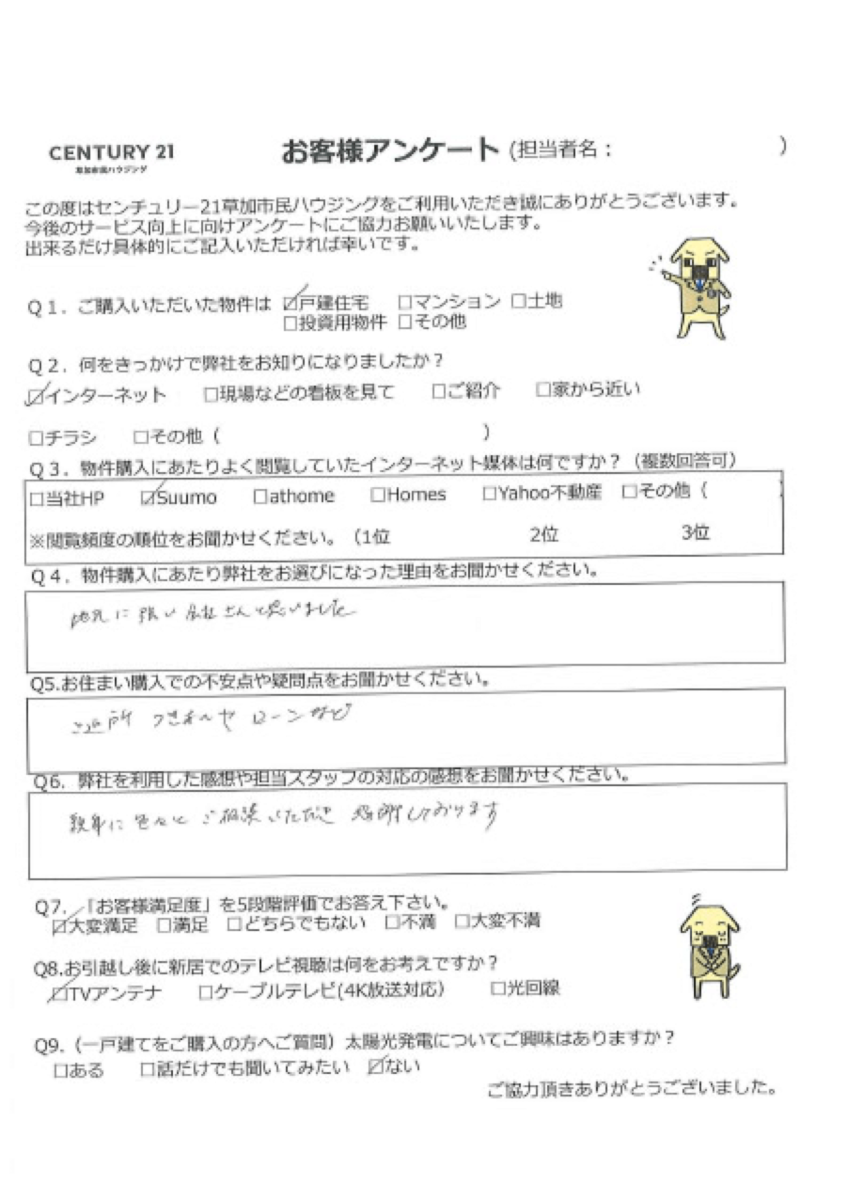 CENTURY 21
草加市民ハウジング
お客様アンケート (担当者名： )
この度はセンチュリー21草加市民ハウジングをご利用いただき誠にありがとうございます。
今後のサービス向上に向けアンケートにご協力お願いいたします。
出来るだけ具体的にご記入いただければ幸いです。
Q1．ご購入いただいた物件は ☑戸建住宅 □マンション □土地
□投資用物件 □その他
Q2．何をきっかけで弊社をお知りになりましたか？
☑インターネット □現場などの看板を見て □ご紹介 □家から近い
□チラシ □その他（ ）
Q3．物件購入にあたりよく閲覧していたインターネット媒体は何ですか？（複数回答可）
□当社HP ☑Suumo □athome □Homes □Yahoo不動産 □その他（ ）
※閲覧頻度の順位をお聞かせください。（1位 2位 3位
Q4．物件購入にあたり弊社をお選びになった理由をお聞かせください。
地元に強い会社さんと思いました
Q5.お住まい購入での不安点や疑問点をお聞かせください。
ご近所 つきあいや ローンなど
Q6．弊社を利用した感想や担当スタッフの対応の感想をお聞かせください。
親身に色々と ご相談いただき 感謝しております
Q7．「お客様満足度」を5段階評価でお答え下さい。
☑大変満足 □満足 □どちらでもない □不満 □大変不満
Q8.お引越し後に新居でのテレビ視聴は何をお考えですか？
☑TVアンテナ □ケーブルテレビ(4K放送対応） □光回線
Q9．（一戸建てをご購入の方へご質問）太陽光発電についてご興味はありますか？
□ある □話だけでも聞いてみたい ☑ない
ご協力頂きありがとうございました。